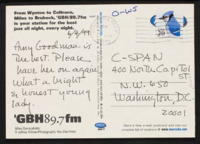 From Wynton to Coltrane,
Miles to Brubeck, 'GBH/89.7fm
is your station for the best
jazz all night, every night.
6/9/99
Amy Goodman is
the best. Please
have her on again.
What a bright
& honest young
lady.
'GBH89.7fm
C-SPAN
400 North Capitol
St
N.W. 650
Washington, DC
20001